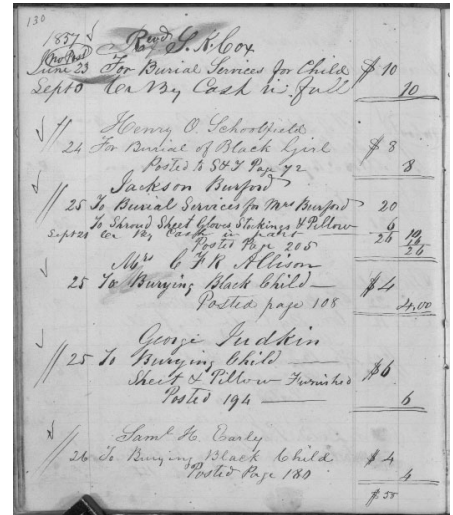 130
1857 Revd S. K. Cox
No Post
June 23 For Burial Services for Child $10
Sept 0 Cr By Cash in full 10
Henry O. Schoolfield
24 For Burial of Black Girl $8
Posted to S&J Page 72 8
Jackson Burford
25 To Burial Services for Mrs Burford 20
To Shroud Sheet Gloves Stockings & Pillow 6
Sept 21 Cr By Cash in 26
Posted Page 205 26
Mrs C F R Allison
25 To Burying Black Child — $4
Posted page 108 4.00
George Judkin
25 To Burying Child —
Sheet & Pillow Furnished $6
Posted 194 — 6
Saml H. Early
26 To Burying Black Child $4
Posted Page 180 4
$58